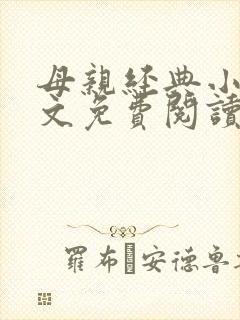 母親經典小
文免費閱讀
羅布 安德魯